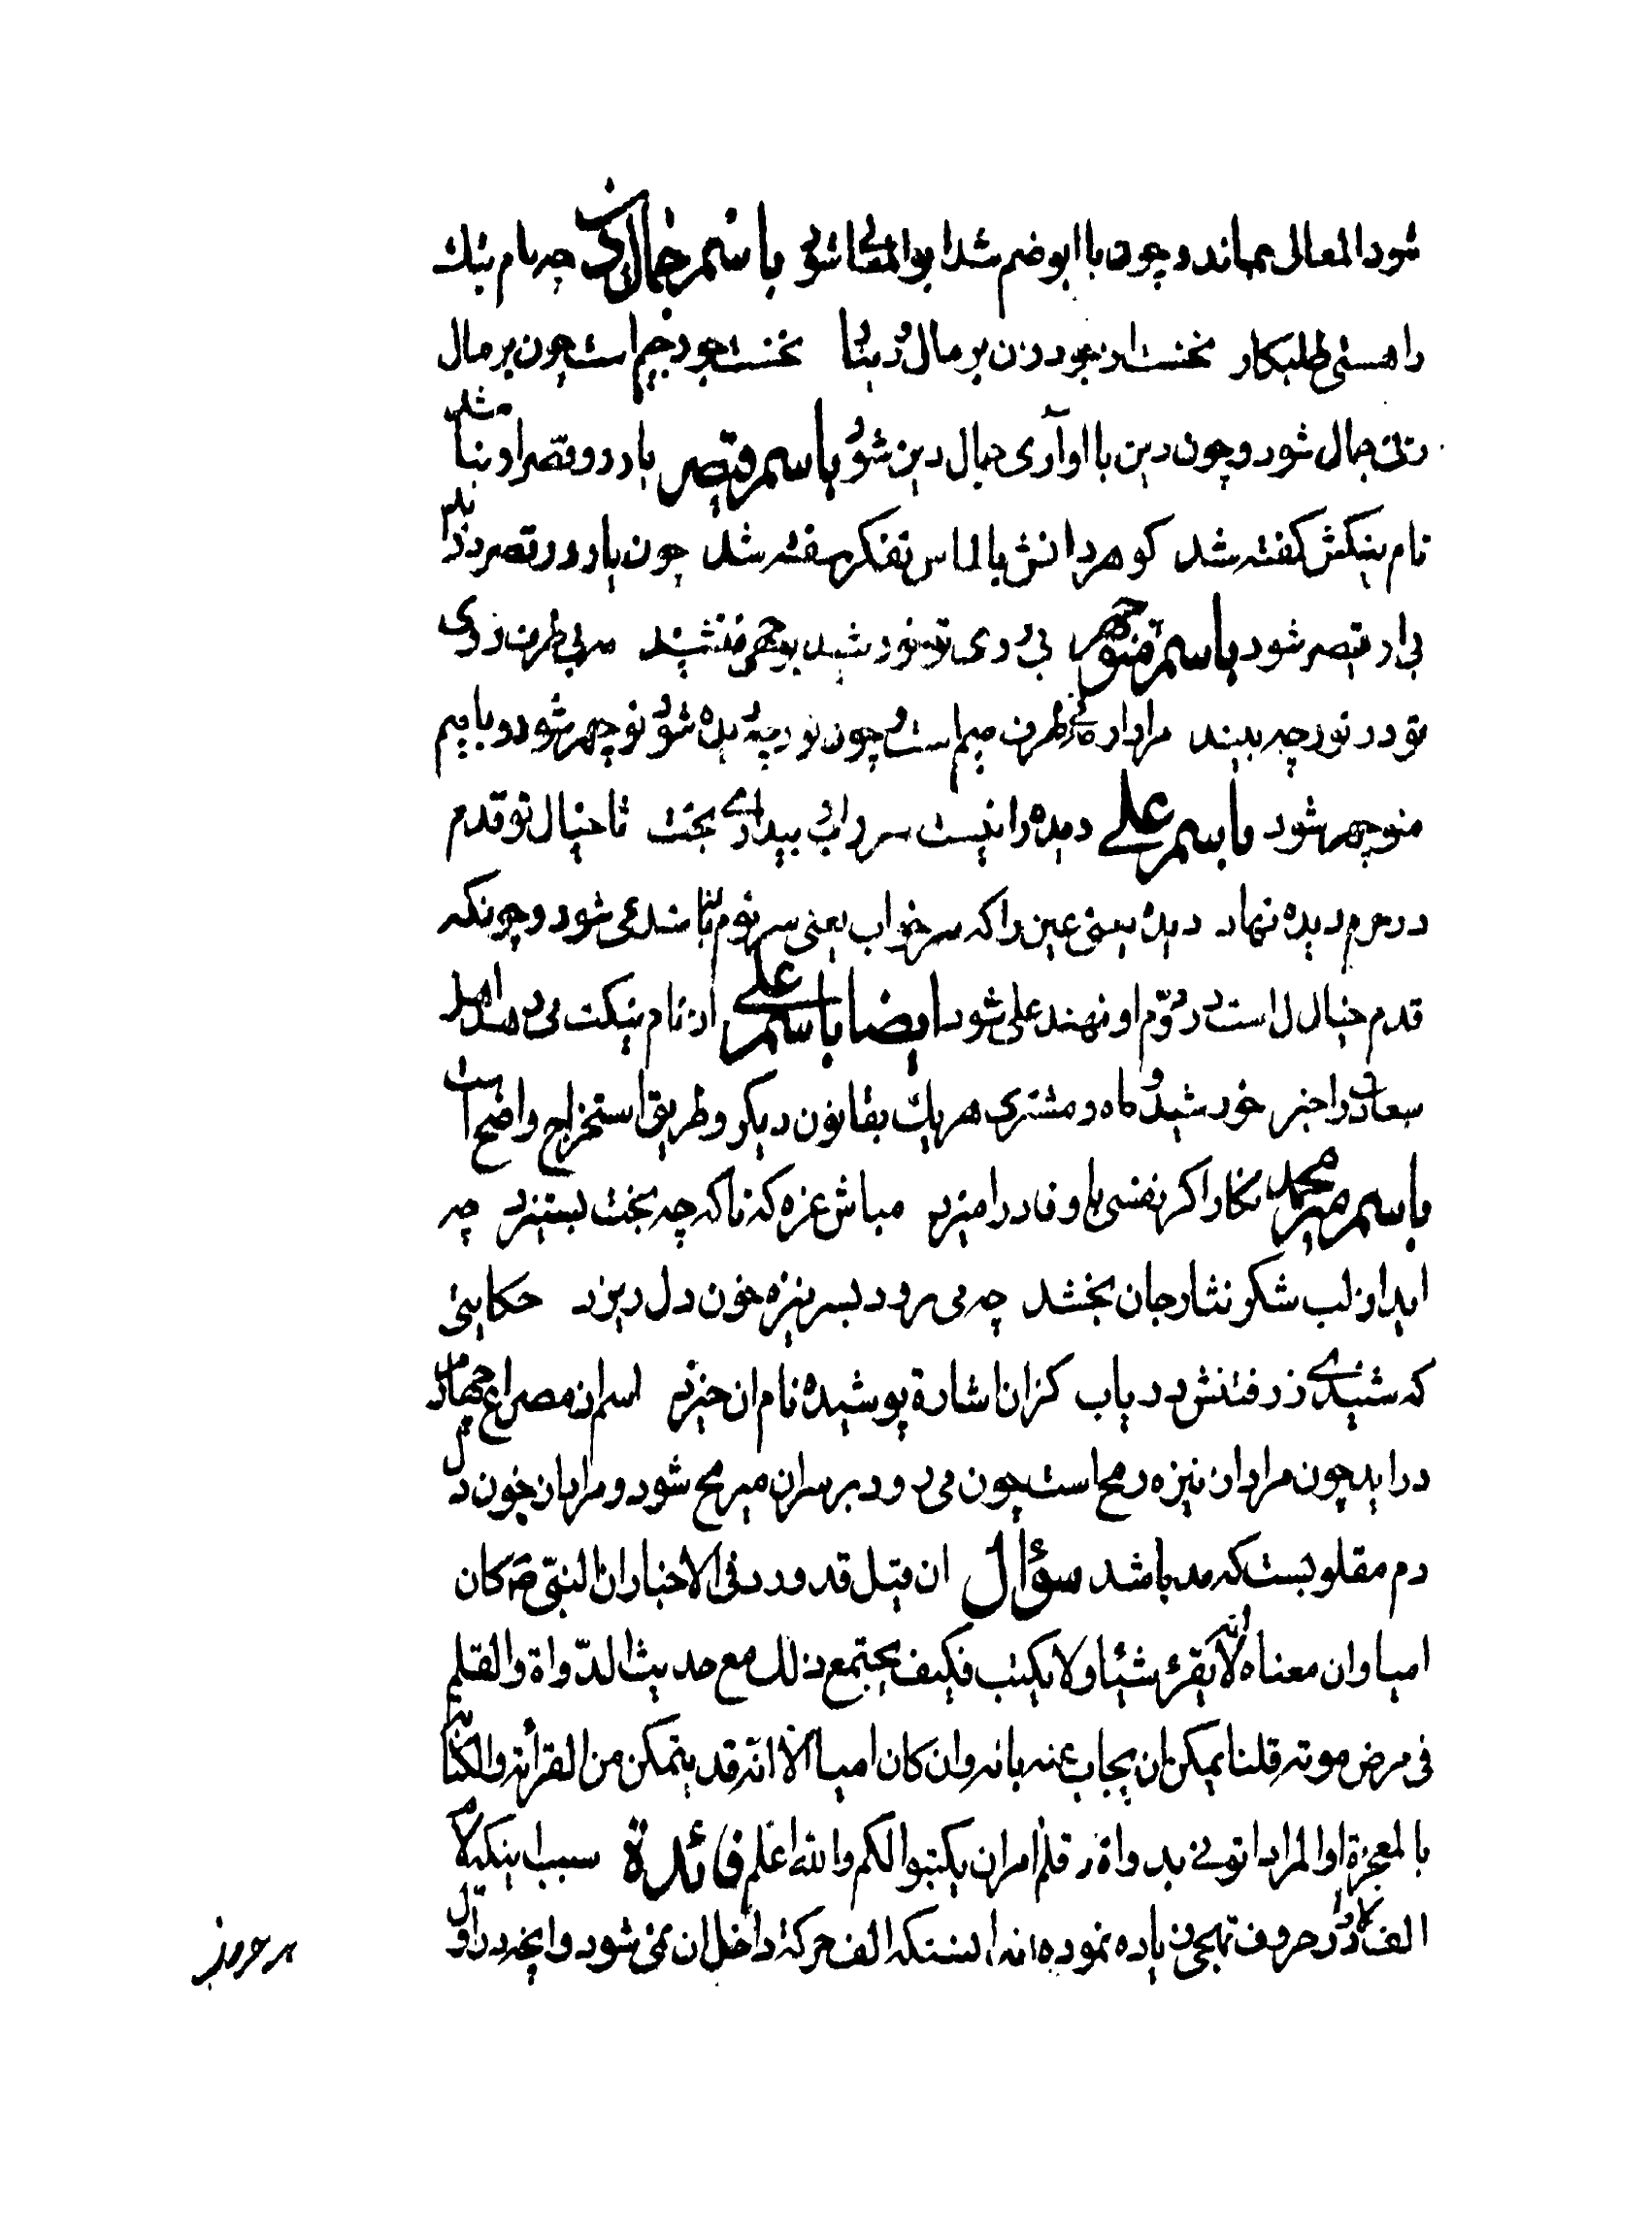 شود المعالی بماند و چون با ابو ضم شد ابو المعالی شود باسم جمال‌الدین چه نام نیك
را هستی طلبکار نخست از جود زن بر مال دینا نخست جود جیم است چون بر مال
زنی جمال شود و چون دین با او آری جمال دین شود باسم قیصر یار در و قصر او بنا شد
نام نیکش کفته شد کوهر دانش بالماس تفکر سفته شد چون یار در قصر در آید
بی ار قیصر شود باسم منوچهر بی روی تو خورشید بوجهی ننشیند مه بی طرف روی
تو در نور چه بیند مراد از مه بی طرف میم است و چون نور چه دیده شود نوچهر شود و با میم
منوچهر شود باسم علی دیده را نیست سر خواب ببیداری بخت تا خیال تو قدم
در حرم دیده نهاد دیده یعنی عین را که سر خواب یعنی سر نوم نباشد عی شود و چونکه
قدم خیال ل است در دوّم او نهند علی شود ایضا باسم علی از نام نیکت می دهد اهل
سعادت را خبر خورشید و ماه و مشتری هریك بقانون دیکر و طریق استخراج واضح است
باسم میر محمد نکارا کر نفسی با وفا در امیزد مباش غره که ناکه چه بخت بستیزد چه
اید از لب شکر نثار جان بخشد چه می رود بسر نیزه خون دل ریزد حکایتی
که شنیدی ز رفتنش دریاب کزان اشارة پوشیده نام ان خیزد اسم از مصراع چهارم
در اید چون مراد از نیزه رمح است چون می رود بر سر ان میرمح شود و مراد از خون دل
دم مقلوبست که مد باشد سؤال ان قیل قد ورد فی الاخبار ان النبی ص کان
امیا وان معناه انه لا یقرء شیئا ولا یکتب فکیف یجتمع ذلك مع حدیث الدّواة والقلم
فی مرض موته قلنا یمکن ان یجاب عنه بانه وان کان امیا الا انّه قد یتمکن من القرائة والکتابة
بالمعجزة او المراد ائتونی بدواة و قلم امر ان یکتبوا لکم والله اعلم فائدة سبب اینکه لام
الف را در حروف تهجی زیاده نموده اند انستکه الف حرکة داخل ان نمی شود و انچه در اوّل